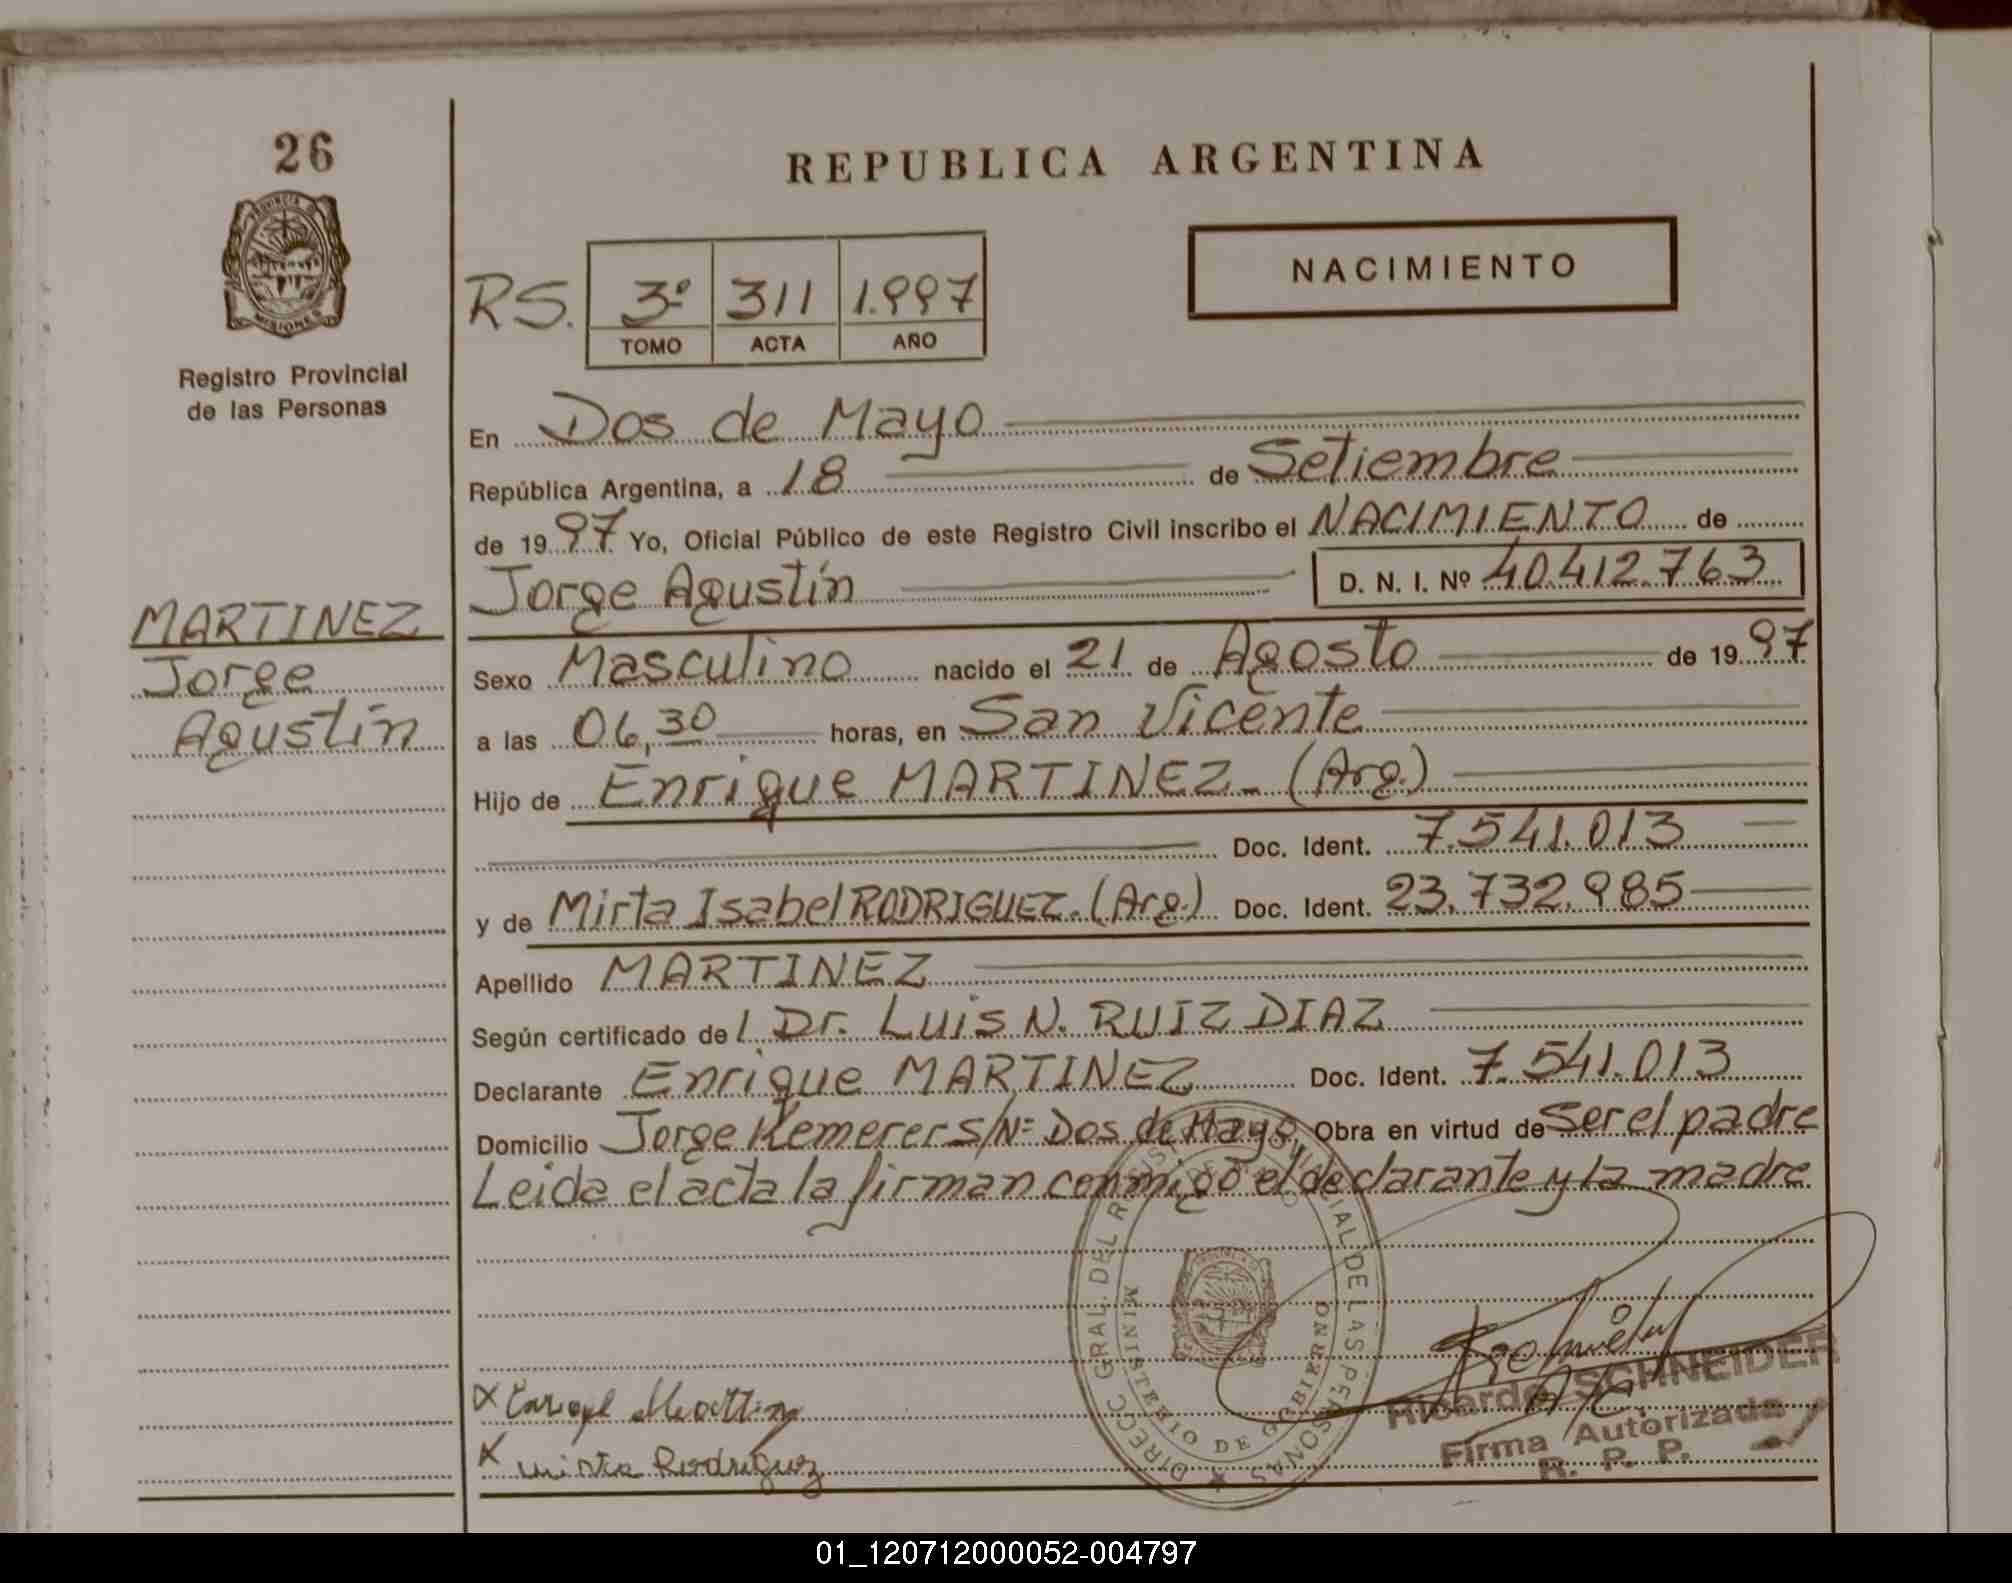 26
REPUBLICA ARGENTINA
PROVINCIA D
MISIONES
Registro Provincial
de las Personas
RS. 3º 311 1.997
TOMO ACTA AÑO
NACIMIENTO
En Dos de Mayo
República Argentina, a 18 de Setiembre
de 1997 Yo, Oficial Público de este Registro Civil inscribo el NACIMIENTO de
Jorge Agustín D. N. I. Nº 40.412.763
MARTINEZ
Jorge
Agustín
Sexo Masculino nacido el 21 de Agosto de 1997
a las 06,30 horas, en San Vicente
Hijo de Enrique MARTINEZ- (Arg.)
Doc. Ident. 7.541.013
y de Mirta Isabel RODRIGUEZ.(Arg.) Doc. Ident. 23.732.985
Apellido MARTINEZ
Según certificado del Dr. Luis N. RUIZ DIAZ
Declarante Enrique MARTINEZ Doc. Ident. 7.541.013
Domicilio Jorge Kemerer S/Nº Dos de Mayo, Obra en virtud de ser el padre
Leida el acta la firman conmigo el declarante y la madre
DIRECC. GRAL. DEL REGISTRO PROVINCIAL DE LAS PERSONAS
MINISTERIO DE GOBIERNO
X
X Mirta Rodriguez
Ricardo SCHNEIDER
Firma Autorizada
R. P. P.
01_120712000052-004797